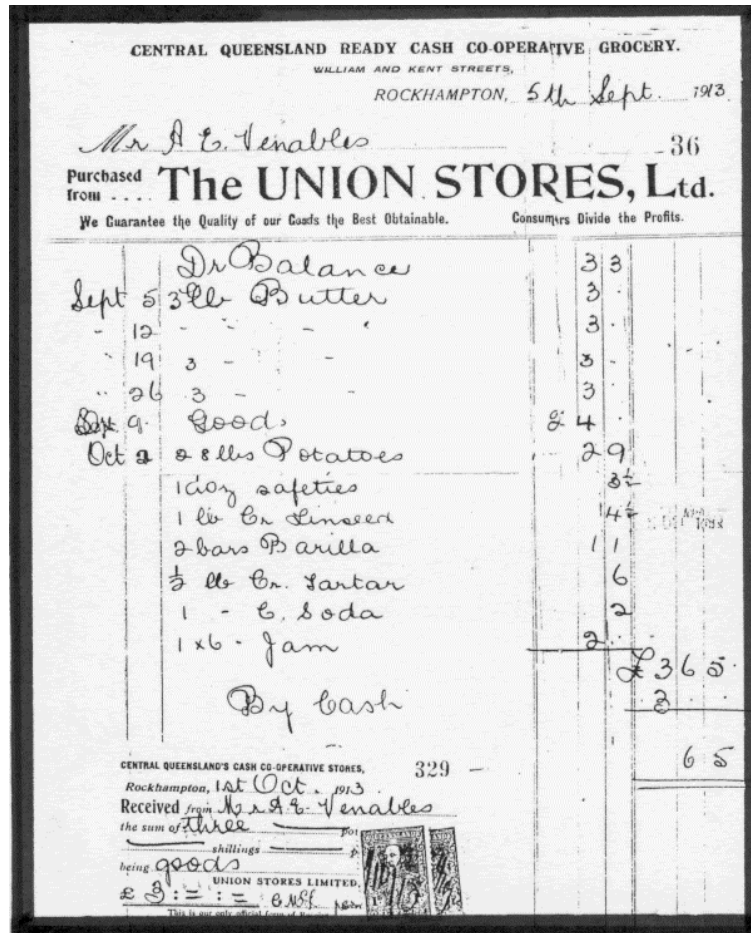 CENTRAL QUEENSLAND READY CASH CO-OPERATIVE GROCERY.
WILLIAM AND KENT STREETS,
ROCKHAMPTON, 5th Sept. 1913.
Mr A E. Venables
36
Purchased from .... The UNION STORES, Ltd.
We Guarantee the Quality of our Goods the Best Obtainable. Consumers Divide the Profits.
Dr Balance 3 3
Sept 5 3 lb Butter 3 .
" 12 - - - 3 .
" 19 3 - - 3 -
" 26 3 - - 3 .
Sept 9. Goods 2 4 .
Oct 2 28 lbs Potatoes 2 9
1 doz safeties 3½
1 lb Cr Linseed 4½
2 bars Barilla 1 1
½ lb Cr. Tartar 6
1 - C. Soda 2
1 x 6 - Jam 2 .
£ 3 6 5
By Cash 3 . .
6 5
CENTRAL QUEENSLAND'S CASH CO-OPERATIVE STORES, 329
Rockhampton, 1st Oct. 1913.
Received from Mr A E. Venables
the sum of three
shillings
being goods
UNION STORES LIMITED,
£ 3 : = : =
This is our only official form of